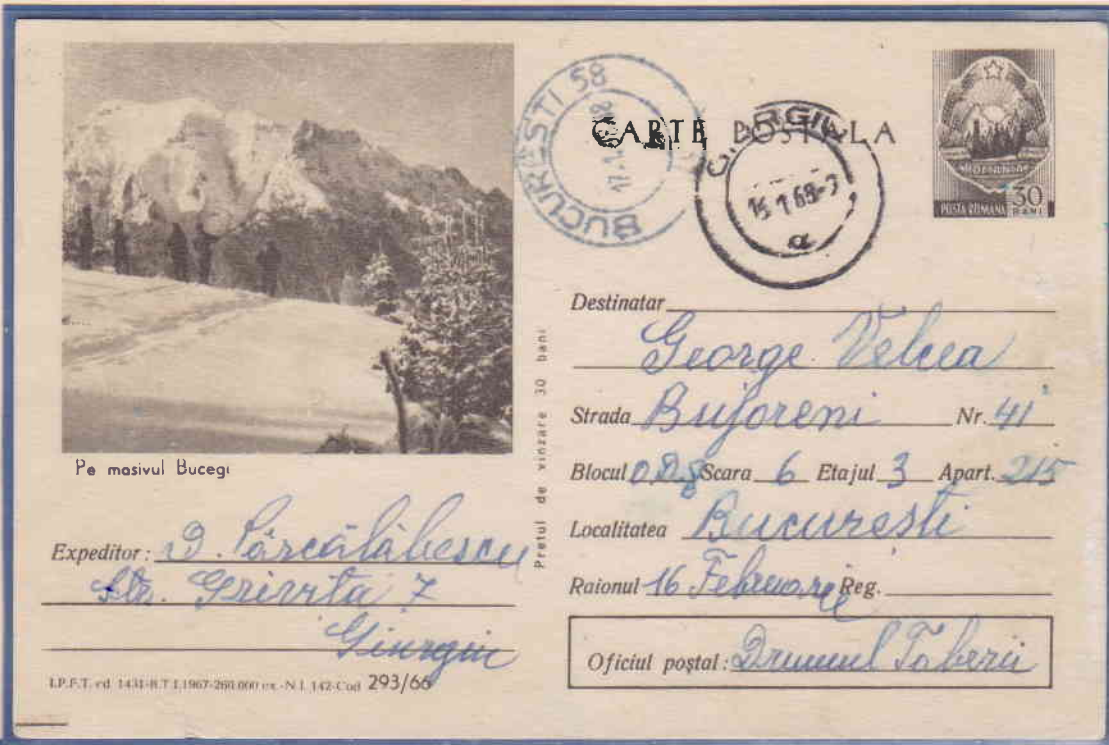 BUCUREȘTI 58
CARTE POȘTALA
ROMANIA
POSTA ROMANA 30 BANI
Pe masivul Bucegi
Pretul de vinzare 30 bani
Destinatar George Velcea
Strada Bujoreni Nr. 41
Blocul Scara 6 Etajul 3 Apart. 215
Localitatea Bucuresti
Raionul 16 Februarie Reg.
Oficiul poștal: Drumul Taberii
Expeditor: D. Pârcălăbescu
Str. Grivita 7
Giurgiu
I.P.F.T. cd 1431-B.T 1.1967-260.000 ex.-N I. 142-Cod 293/66